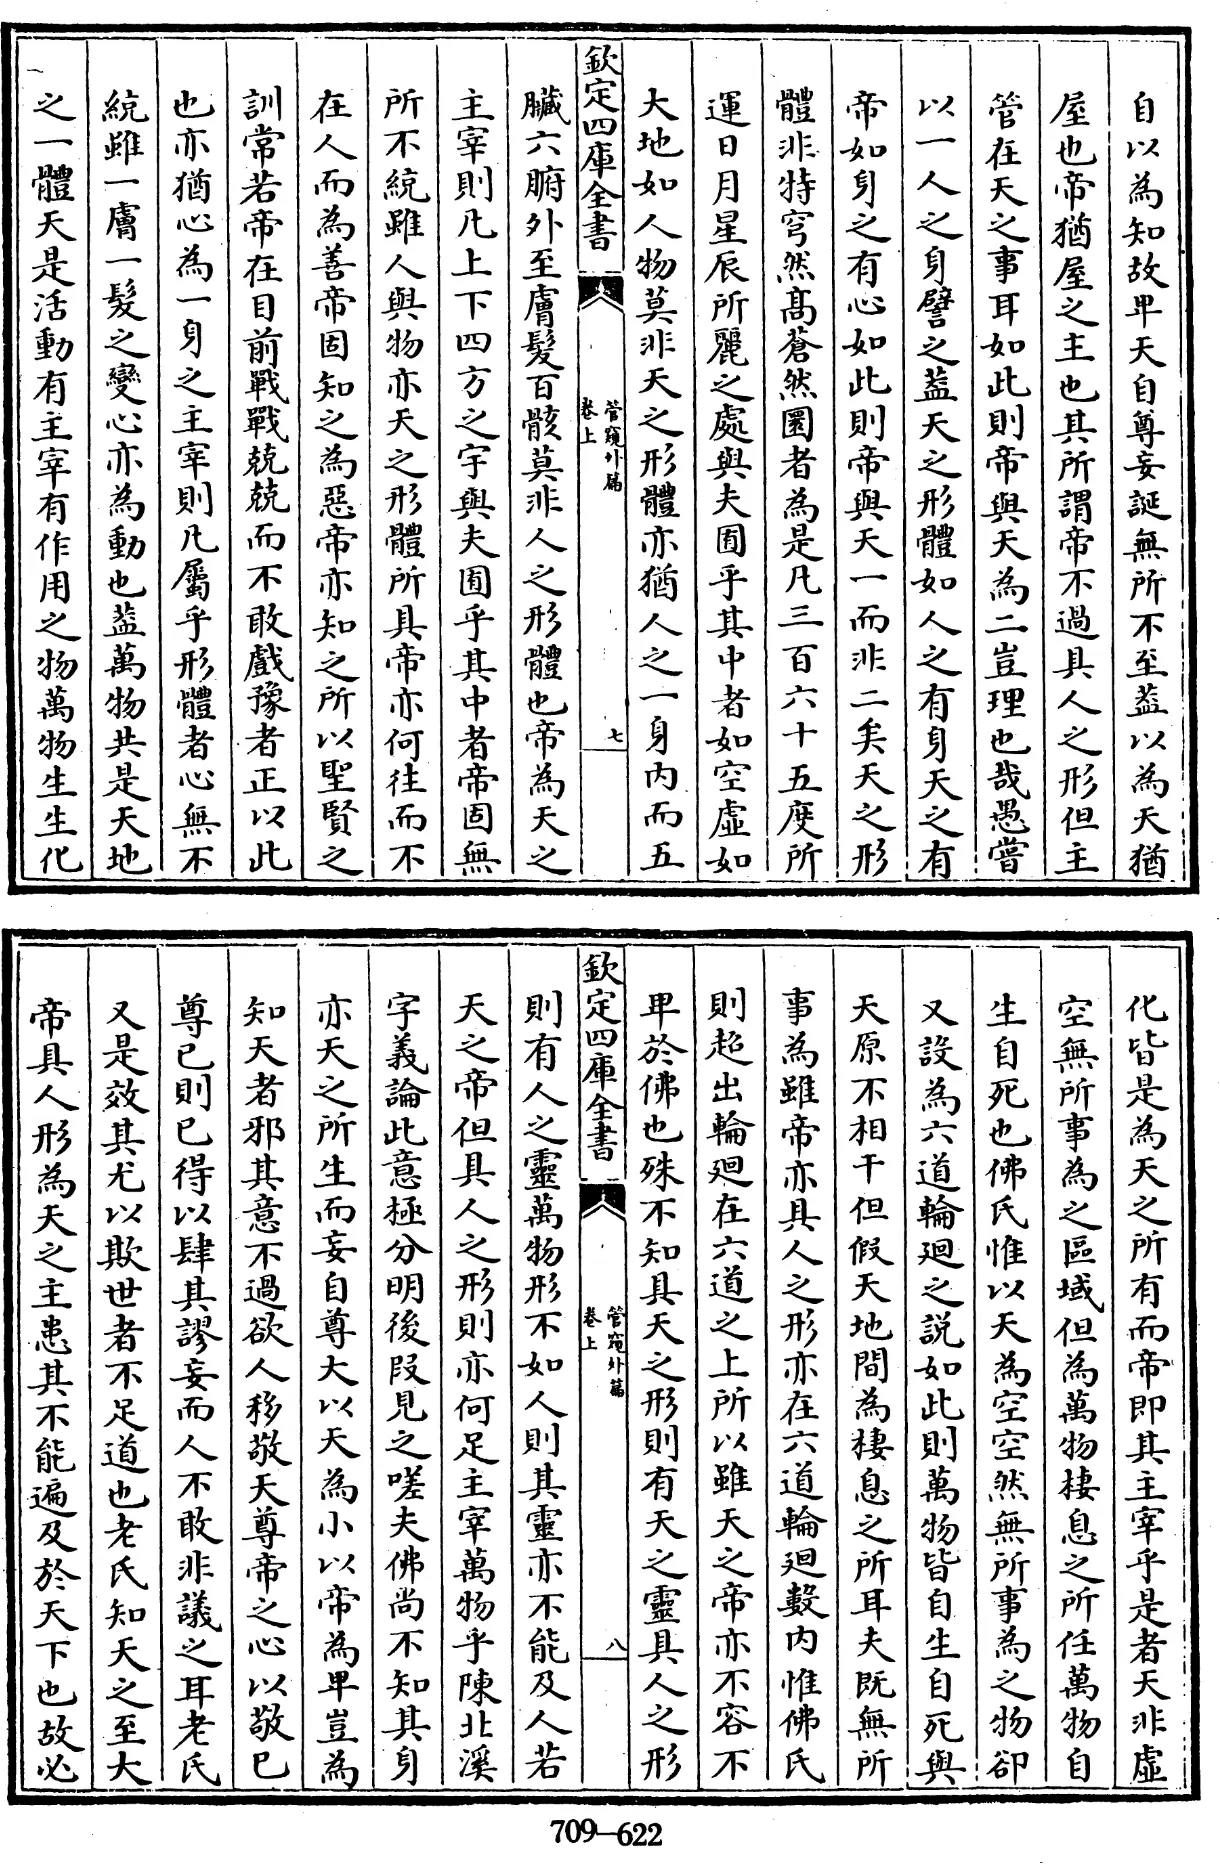 自以為知故卑天自尊妄誕無所不至葢以為天猶
屋也帝猶屋之主也其所謂帝不過具人之形但主
管在天之事耳如此則帝與天為二豈理也哉愚嘗
以一人之身譬之葢天之形體如人之有身天之有
帝如身之有心如此則帝與天一而非二矣天之形
體非特穹然髙蒼然圜者為是凡三百六十五度所
運日月星辰所麗之處與夫囿乎其中者如空虛如
大地如人物莫非天之形體亦猶人之一身内而五
欽定四庫全書
管窺外篇
卷上
七
臟六腑外至膚髮百骸莫非人之形體也帝為天之
主宰則凡上下四方之宇與夫囿乎其中者帝固無
所不統雖人與物亦天之形體所具帝亦何往而不
在人而為善帝固知之為惡帝亦知之所以聖賢之
訓常若帝在目前戰戰兢兢而不敢戲豫者正以此
也亦猶心為一身之主宰則凡屬乎形體者心無不
統雖一膚一髮之變心亦為動也葢萬物共是天地
之一體天是活動有主宰有作用之物萬物生生化
化皆是為天之所有而帝即其主宰乎是者天非虛
空無所事為之區域但為萬物棲息之所任萬物自
生自死也佛氏惟以天為空空然無所事為之物卻
又設為六道輪廻之説如此則萬物皆自生自死與
天原不相干但假天地間為棲息之所耳夫既無所
事為雖帝亦具人之形亦在六道輪廻數内惟佛氏
則超出輪廻在六道之上所以雖天之帝亦不容不
卑於佛也殊不知具天之形則有天之靈具人之形
欽定四庫全書
管窺外篇
卷上
八
則有人之靈萬物形不如人則其靈亦不能及人若
天之帝但具人之形則亦何足主宰萬物乎陳北溪
字義論此意極分明後叚見之嗟夫佛尚不知其身
亦天之所生而妄自尊大以天為小以帝為卑豈為
知天者邪其意不過欲人移敬天尊帝之心以敬已
尊已則已得以肆其謬妄而人不敢非議之耳老氏
又是效其尤以欺世者不足道也老氏知天之至大
帝具人形為天之主患其不能遍及於天下也故必
709—622